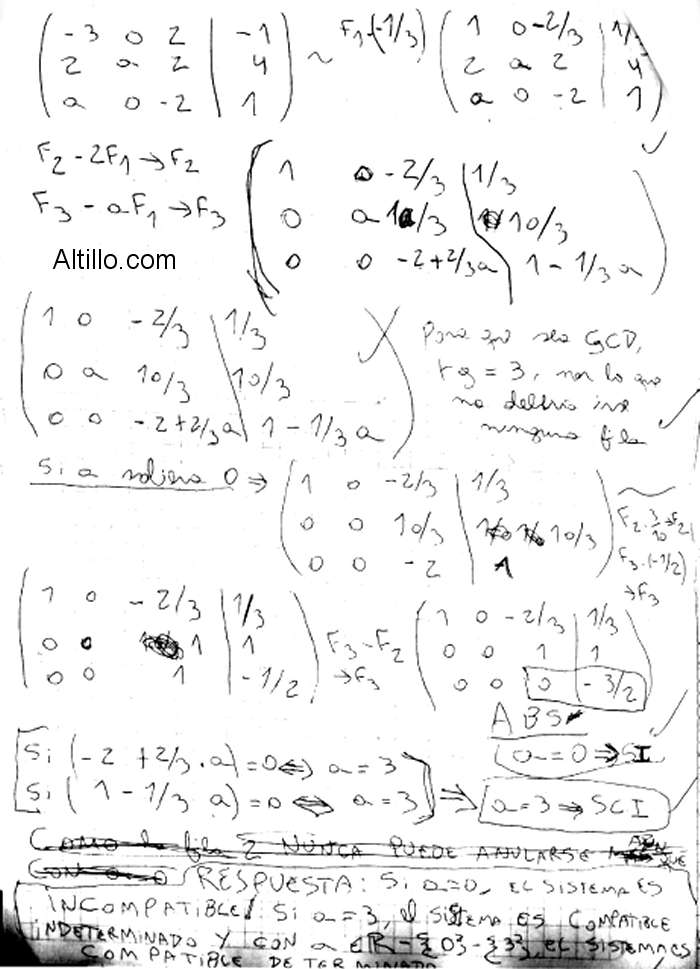 ( -3 0 2 | -1 ) ~ F1·(-1/3) ( 1 0 -2/3 | 1/3
2 a 2 | 4 2 a 2 | 4
a 0 -2 | 1 ) a 0 -2 | 1 )
F2 - 2F1 → F2
F3 - aF1 → F3
( 1 0 -2/3 | 1/3
0 a 10/3 | 10/3
0 0 -2+2/3a | 1 - 1/3 a )
Altillo.com
( 1 0 -2/3 | 1/3
0 a 10/3 | 10/3
0 0 -2+2/3a | 1 - 1/3 a )
Para que sea SCD,
rg = 3, por lo que
no debería
ninguna fila
Si a valiera 0 ⇒ ( 1 0 -2/3 | 1/3
0 0 10/3 | 10/3 )
0 0 -2 | 1
F2·3/10→F2
F3·(-1/2)
→F3
( 1 0 -2/3 | 1/3
0 0 1 | 1
0 0 1 | -1/2 )
F3-F2
→F3
( 1 0 -2/3 | 1/3
0 0 1 | 1
0 0 0 | -3/2 )
ABS
a=0 ⇒ SI
Si (-2 + 2/3 . a) = 0 ⇔ a = 3
Si ( 1 - 1/3 a) = 0 ⇔ a = 3 ⇒ a=3 ⇒ SCI
COMO la fila 2 NUNCA PUEDE ANULARSE AUN QUE
CON a=0 RESPUESTA: Si a=0, EL SISTEMA ES
INCOMPATIBLE, Si a=3, el SISTEMA ES COMPATIBLE
INDETERMINADO Y CON a ∈ R - {0} - {3}, EL SISTEMA ES
COMPATIBLE DETERMINADO